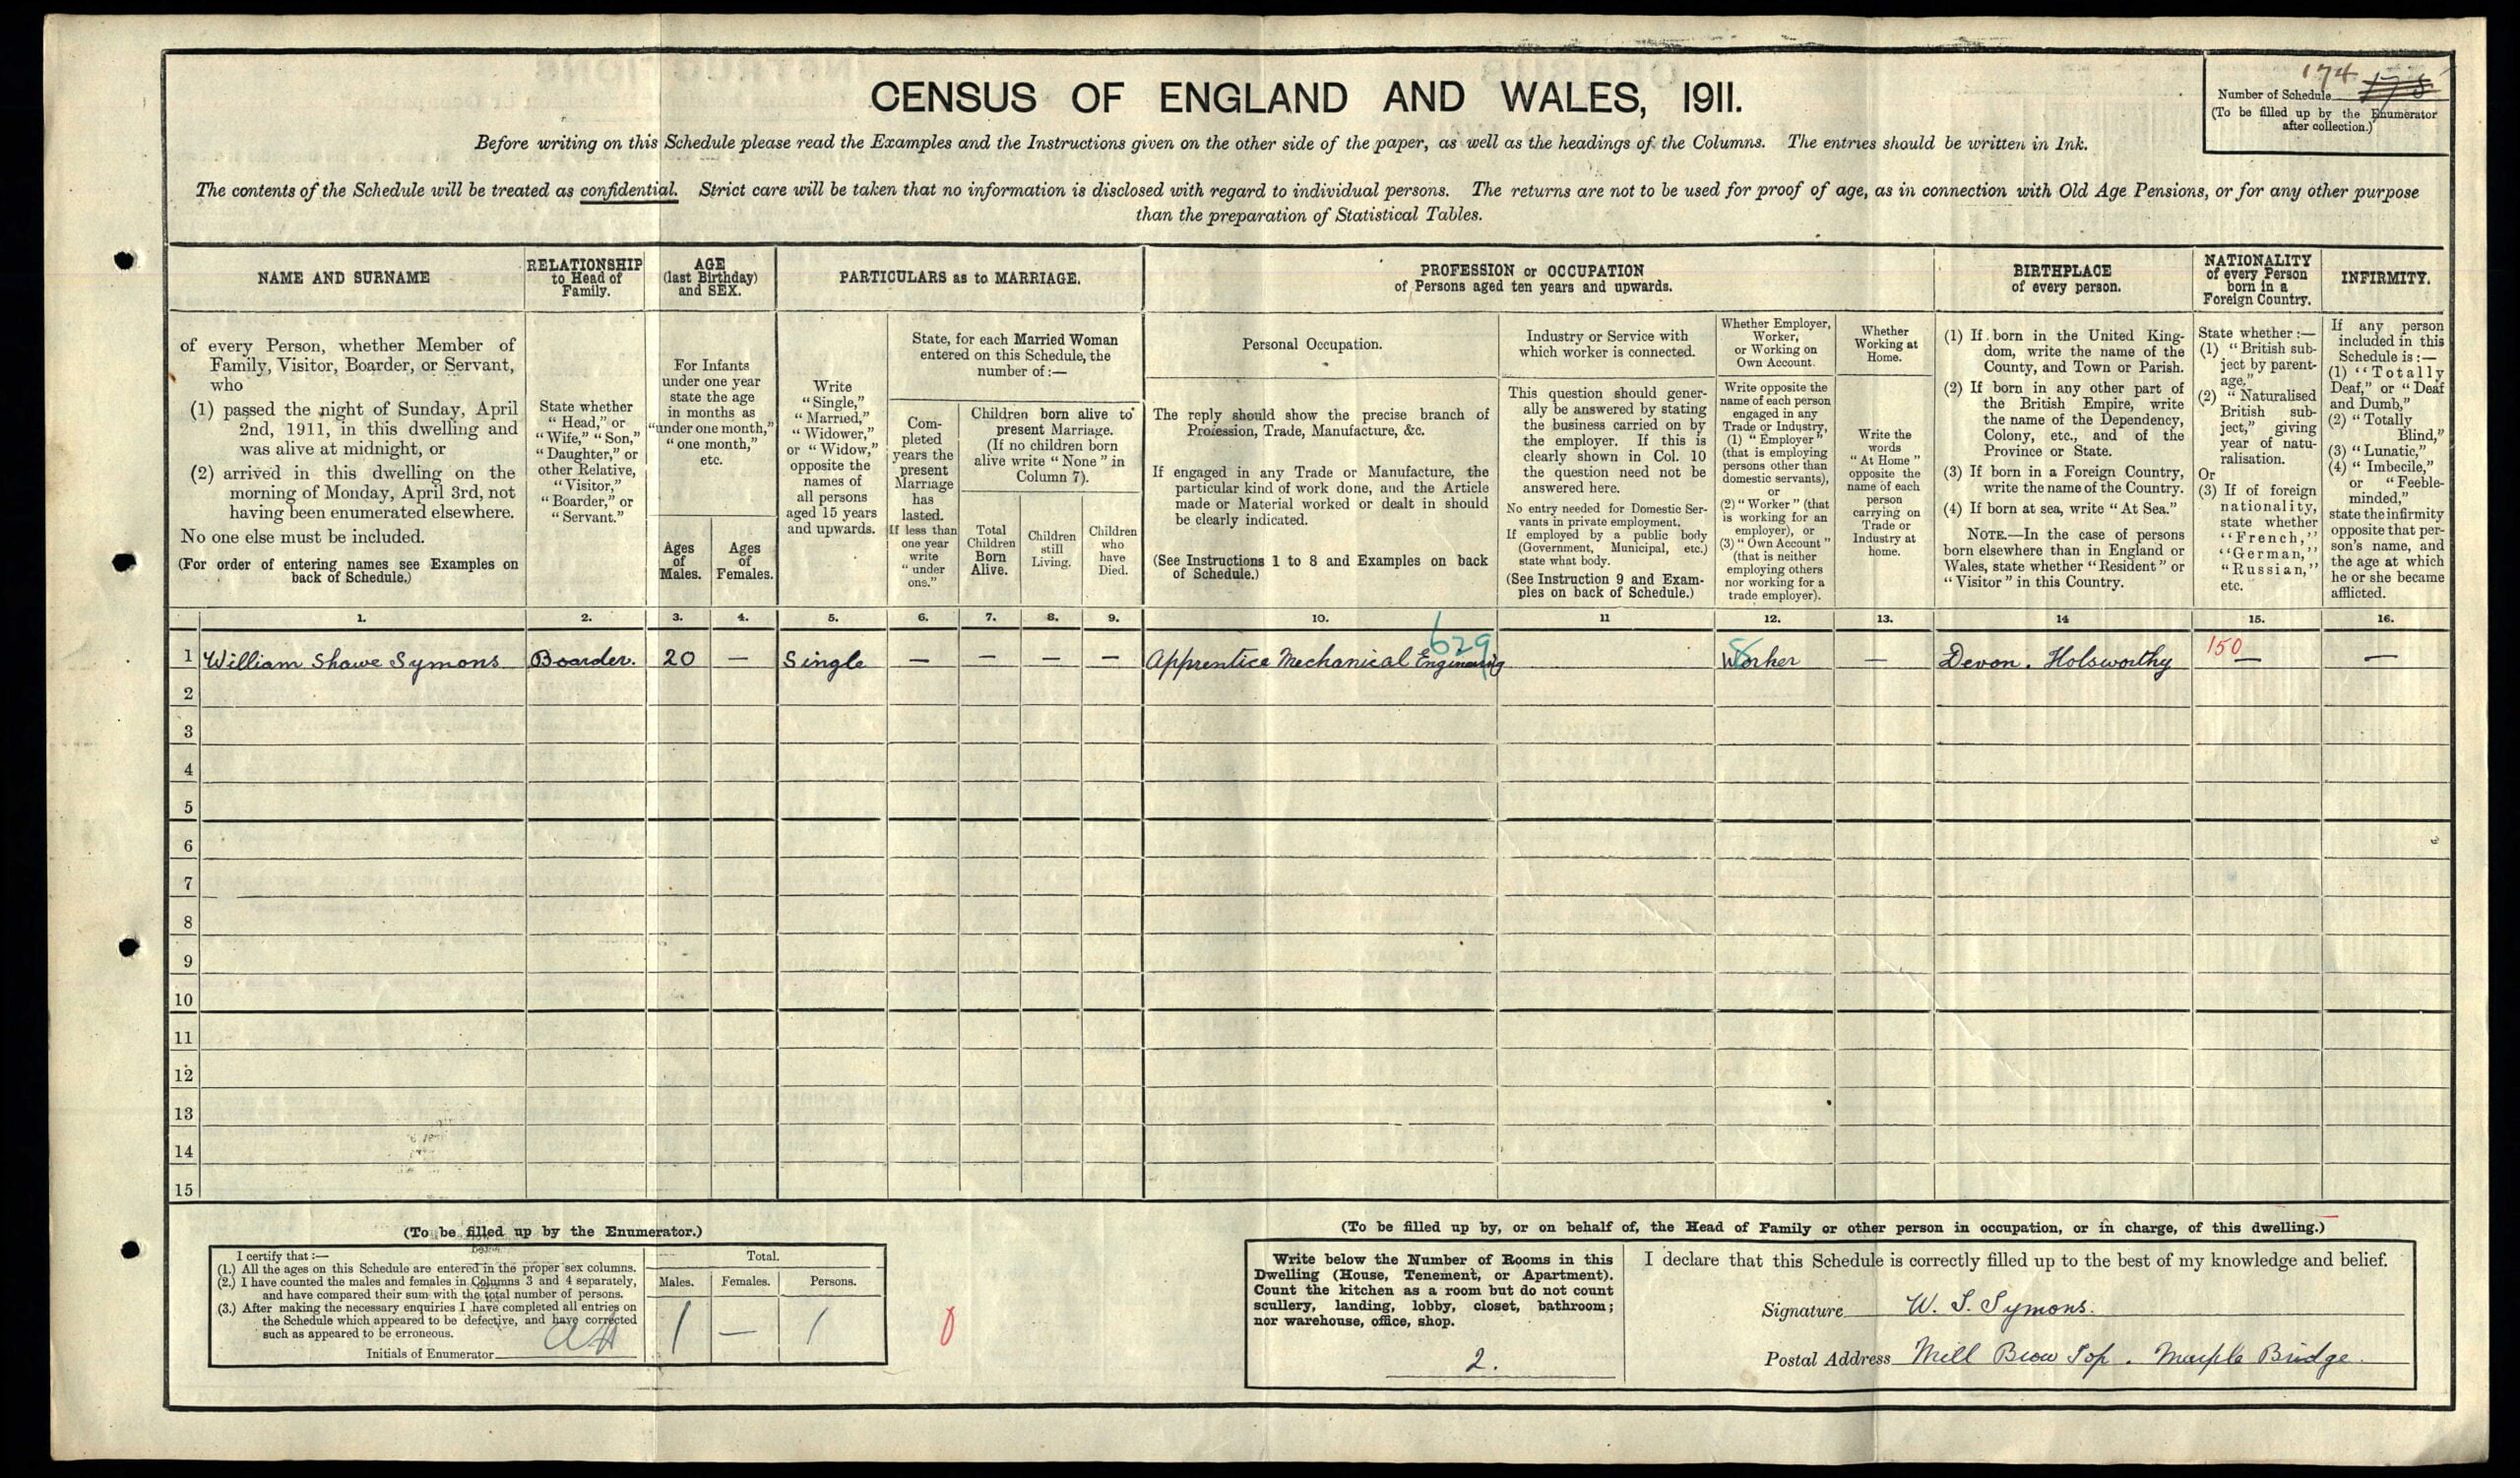 174 175
Number of Schedule
(To be filled up by the Enumerator
after collection.)
CENSUS OF ENGLAND AND WALES, 1911.
Before writing on this Schedule please read the Examples and the Instructions given on the other side of the paper, as well as the headings of the Columns. The entries should be written in Ink.
The contents of the Schedule will be treated as confidential. Strict care will be taken that no information is disclosed with regard to individual persons. The returns are not to be used for proof of age, as in connection with Old Age Pensions, or for any other purpose
than the preparation of Statistical Tables.
NAME AND SURNAME
of every Person, whether Member of
Family, Visitor, Boarder, or Servant,
who
(1) passed the night of Sunday, April
2nd, 1911, in this dwelling and
was alive at midnight, or
(2) arrived in this dwelling on the
morning of Monday, April 3rd, not
having been enumerated elsewhere.
No one else must be included.
(For order of entering names see Examples on
back of Schedule.)
RELATIONSHIP
to Head of
Family.
State whether
"Head," or
"Wife," "Son,"
"Daughter," or
other Relative,
"Visitor,"
"Boarder," or
"Servant."
AGE
(last Birthday)
and SEX.
For Infants
under one year
state the age
in months as
"under one month,"
"one month,"
etc.
Ages
of
Males.
Ages
of
Females.
PARTICULARS as to MARRIAGE.
Write
"Single,"
"Married,"
"Widower,"
or "Widow,"
opposite the
names of
all persons
aged 15 years
and upwards.
State, for each Married Woman
entered on this Schedule, the
number of:—
Com-
pleted
years the
present
Marriage
has
lasted.
If less than
one year
write
"under
one."
Children born alive to
present Marriage.
(If no children born
alive write "None" in
Column 7).
Total
Children
Born
Alive.
Children
still
Living.
Children
who
have
Died.
PROFESSION or OCCUPATION
of Persons aged ten years and upwards.
Personal Occupation.
The reply should show the precise branch of
Profession, Trade, Manufacture, &c.
If engaged in any Trade or Manufacture, the
particular kind of work done, and the Article
made or Material worked or dealt in should
be clearly indicated.
(See Instructions 1 to 8 and Examples on back
of Schedule.)
Industry or Service with
which worker is connected.
This question should gener-
ally be answered by stating
the business carried on by
the employer. If this is
clearly shown in Col. 10
the question need not be
answered here.
No entry needed for Domestic Ser-
vants in private employment.
If employed by a public body
(Government, Municipal, etc.)
state what body.
(See Instruction 9 and Exam-
ples on back of Schedule.)
Whether Employer,
Worker,
or Working on
Own Account.
Write opposite the
name of each person
engaged in any
Trade or Industry,
(1) "Employer"
(that is employing
persons other than
domestic servants),
or
(2) "Worker" (that
is working for an
employer), or
(3) "Own Account"
(that is neither
employing others
nor working for a
trade employer).
Whether
Working at
Home.
Write the
words
"At Home"
opposite the
name of each
person
carrying on
Trade or
Industry at
home.
BIRTHPLACE
of every person.
(1) If born in the United King-
dom, write the name of the
County, and Town or Parish.
(2) If born in any other part of
the British Empire, write
the name of the Dependency,
Colony, etc., and of the
Province or State.
(3) If born in a Foreign Country,
write the name of the Country.
(4) If born at sea, write "At Sea."
NOTE.—In the case of persons
born elsewhere than in England or
Wales, state whether "Resident" or
"Visitor" in this Country.
NATIONALITY
of every Person
born in a
Foreign Country.
State whether:—
(1) "British sub-
ject by parent-
age,"
(2) "Naturalised
British sub-
ject," giving
year of natu-
ralisation.
Or
(3) If of foreign
nationality,
state whether
"French,"
"German,"
"Russian,"
etc.
INFIRMITY.
If any person
included in this
Schedule is:—
(1) "Totally
Deaf," or "Deaf
and Dumb,"
(2) "Totally
Blind,"
(3) "Lunatic,"
(4) "Imbecile,"
or "Feeble-
minded,"
state the infirmity
opposite that per-
son's name, and
the age at which
he or she became
afflicted.
1. 2. 3. 4. 5. 6. 7. 8. 9. 10. 11 12. 13. 14 15. 16.
629
1 William Shawe Symons Boarder. 20 — Single — — — — Apprentice Mechanical Engineering Worker — Devon. Holsworthy 150 — —
2
3
4
5
6
7
8
9
10
11
12
13
14
15
(To be filled up by the Enumerator.)
I certify that:—
(1.) All the ages on this Schedule are entered in the proper sex columns.
(2.) I have counted the males and females in Columns 3 and 4 separately,
and have compared their sum with the total number of persons.
(3.) After making the necessary enquiries I have completed all entries on
the Schedule which appeared to be defective, and have corrected
such as appeared to be erroneous.
Initials of Enumerator
Total.
Males. Females. Persons.
1 — 1
0
(To be filled up by, or on behalf of, the Head of Family or other person in occupation, or in charge, of this dwelling.)
Write below the Number of Rooms in this
Dwelling (House, Tenement, or Apartment).
Count the kitchen as a room but do not count
scullery, landing, lobby, closet, bathroom;
nor warehouse, office, shop.
2.
I declare that this Schedule is correctly filled up to the best of my knowledge and belief.
Signature W. S. Symons.
Postal Address Mill Brow Top. Marple Bridge.